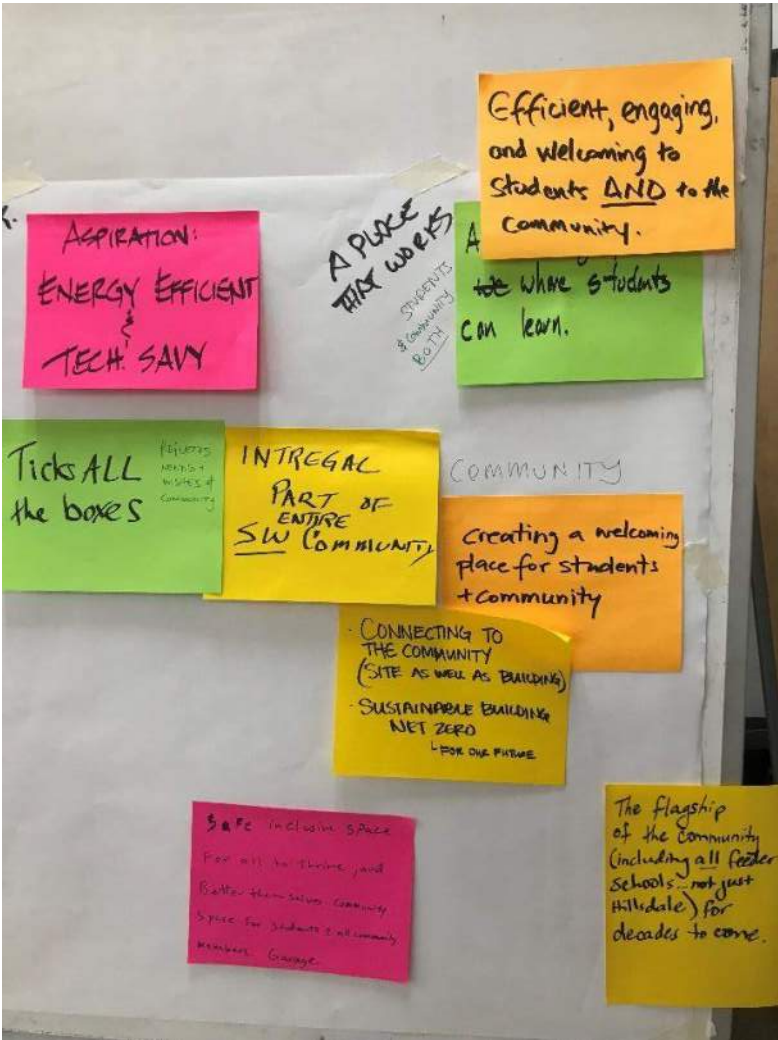 Efficient, engaging,
and welcoming to
students AND to the
community.
ASPIRATION:
ENERGY EFFICIENT
&
TECH. SAVY
A PLACE
THAT WORKS
STUDENTS
& COMMUNITY
BOTH
A
where students
can learn.
Ticks ALL
the boxes
REFLECTS
NEEDS +
WISHES of
COMMUNITY
INTREGAL
PART OF
ENTIRE
SW COMMUNITY
COMMUNITY
Creating a welcoming
place for students
+ community
· CONNECTING TO
THE COMMUNITY
(SITE AS WELL AS BUILDING)
· SUSTAINABLE BUILDING
NET ZERO
FOR OUR FUTURE
Safe inclusive space
For all to thrive, and
Better themselves community
Space for students & all community
members. Garage
The flagship
of the community
(including all feeder
schools - not just
Hillsdale) for
decades to come.